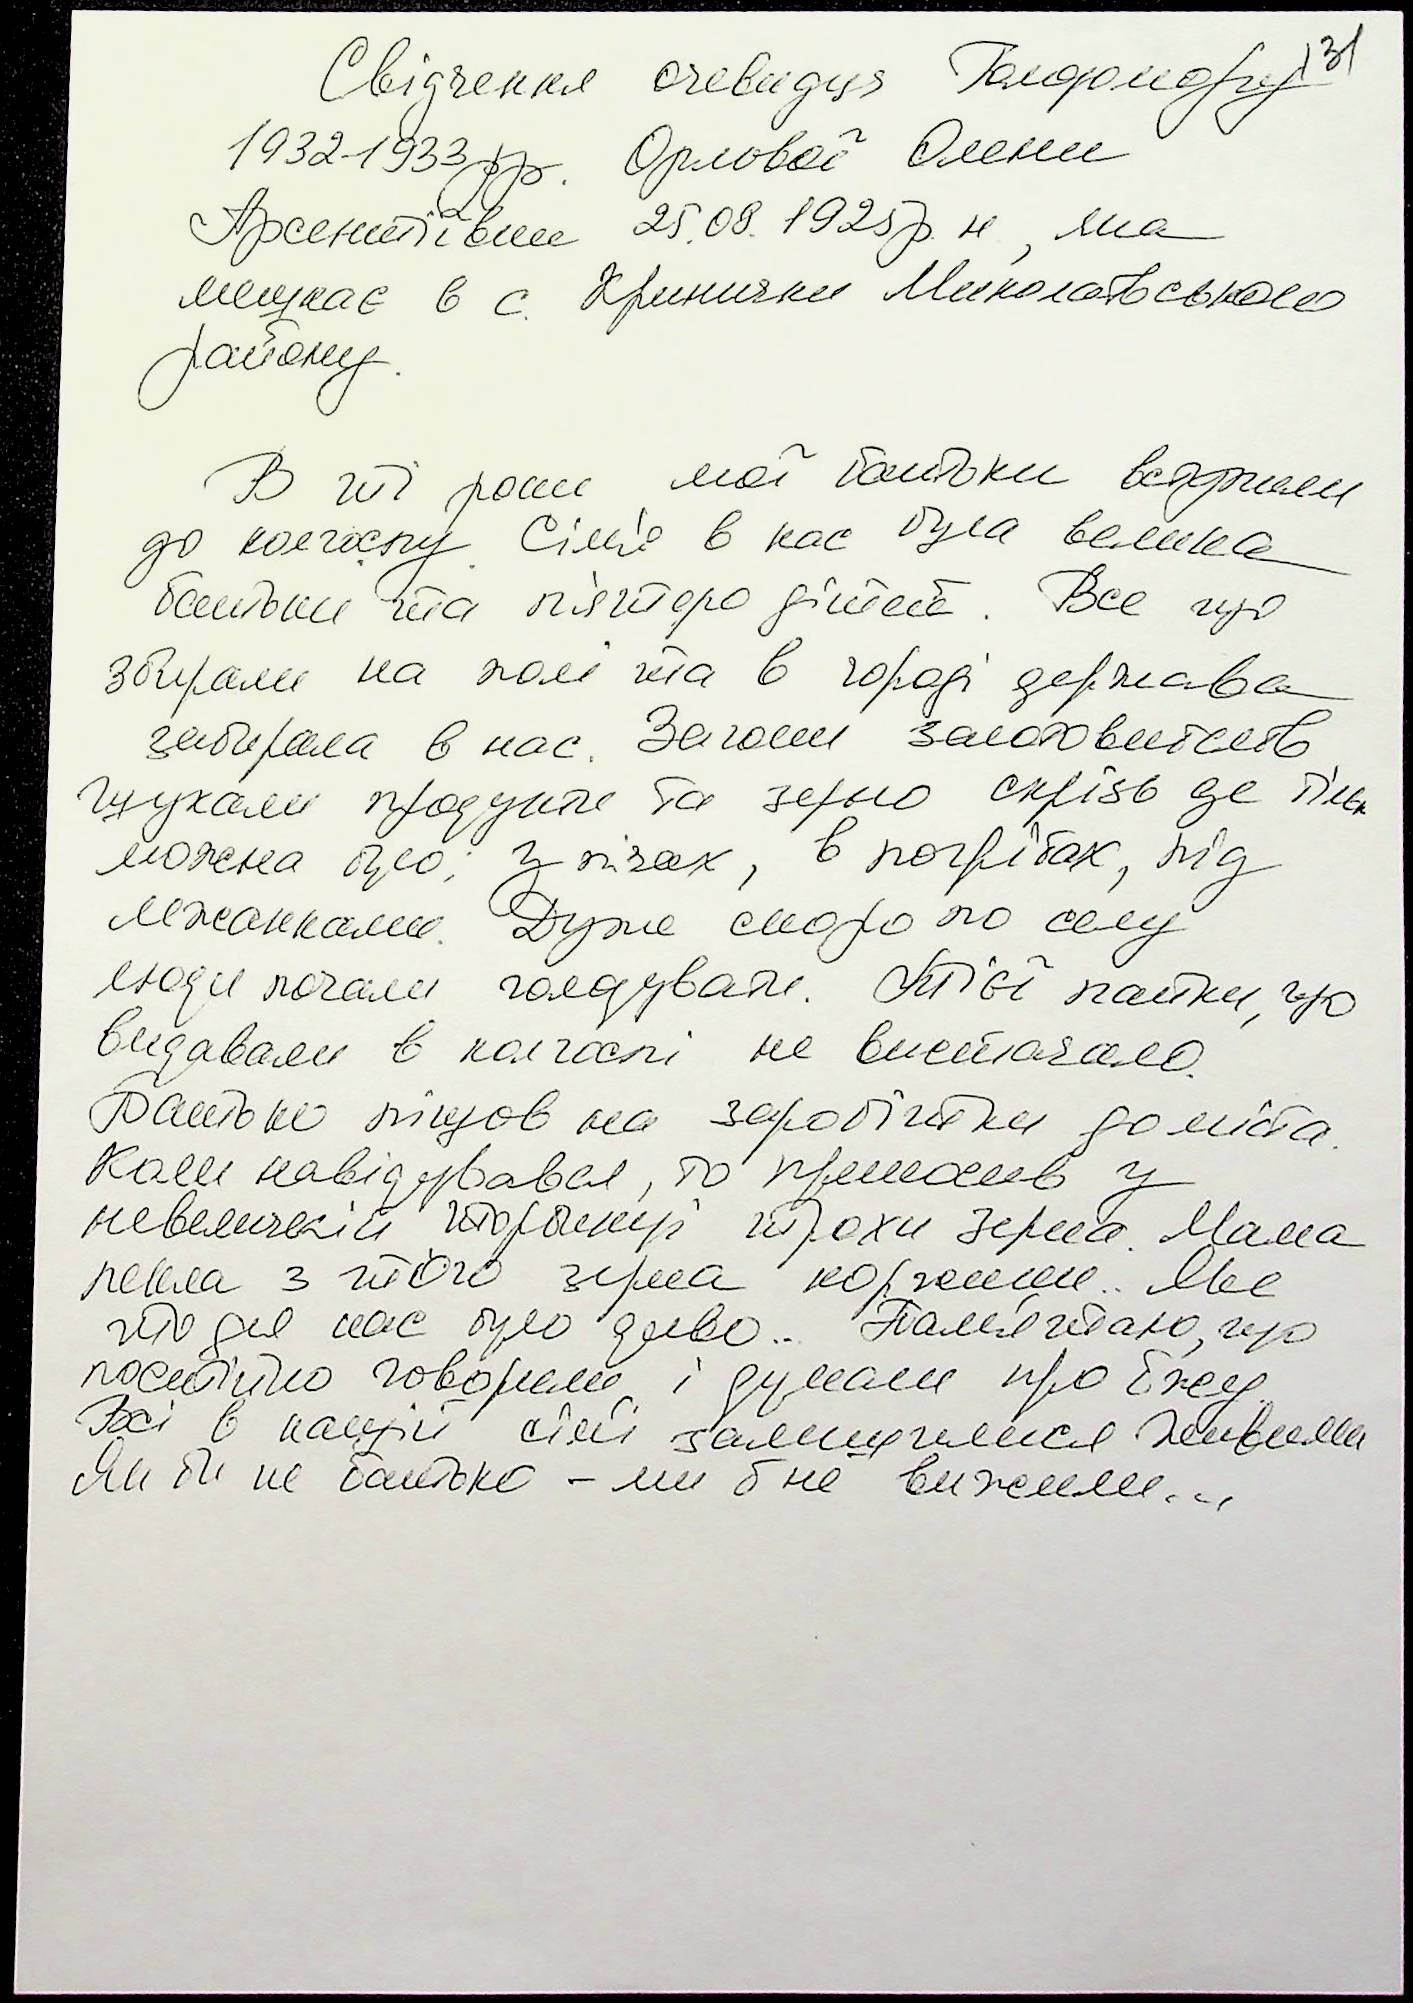 131
Свідчення очевидця Голодомору
1932-1933 рр. Орлової Олени
Арсентіївни 25.08.1925 р. н, яка
мешкає в с. Кринички Миколаївського
району.
В ті роки мої батьки вступили
до колгоспу. Сім'я в нас була велика
батьки та п'ятеро дітей. Все що
збирали на полі та в городі держава
забирала в нас. Загони заготовителів
шукали продукти та зерно скрізь де тільк
можна було; у пічах, в погрібах, під
лежанками. Дуже скоро по селу
люди почали голодувати. Тієї пайки, що
видавали в колгоспі не вистачало.
Батько пішов на заробітки до міста.
Коли навідувався, то приносив у
невеличкій торбинці трохи зерна. Мама
пекла з того зерна коржики.. Яке
то для нас було диво.. Пам'ятаю, що
постійно говорили і думали про їжу.
Всі в нашій сім'ї залишилися живими
Як би не батько - ми б не вижили...